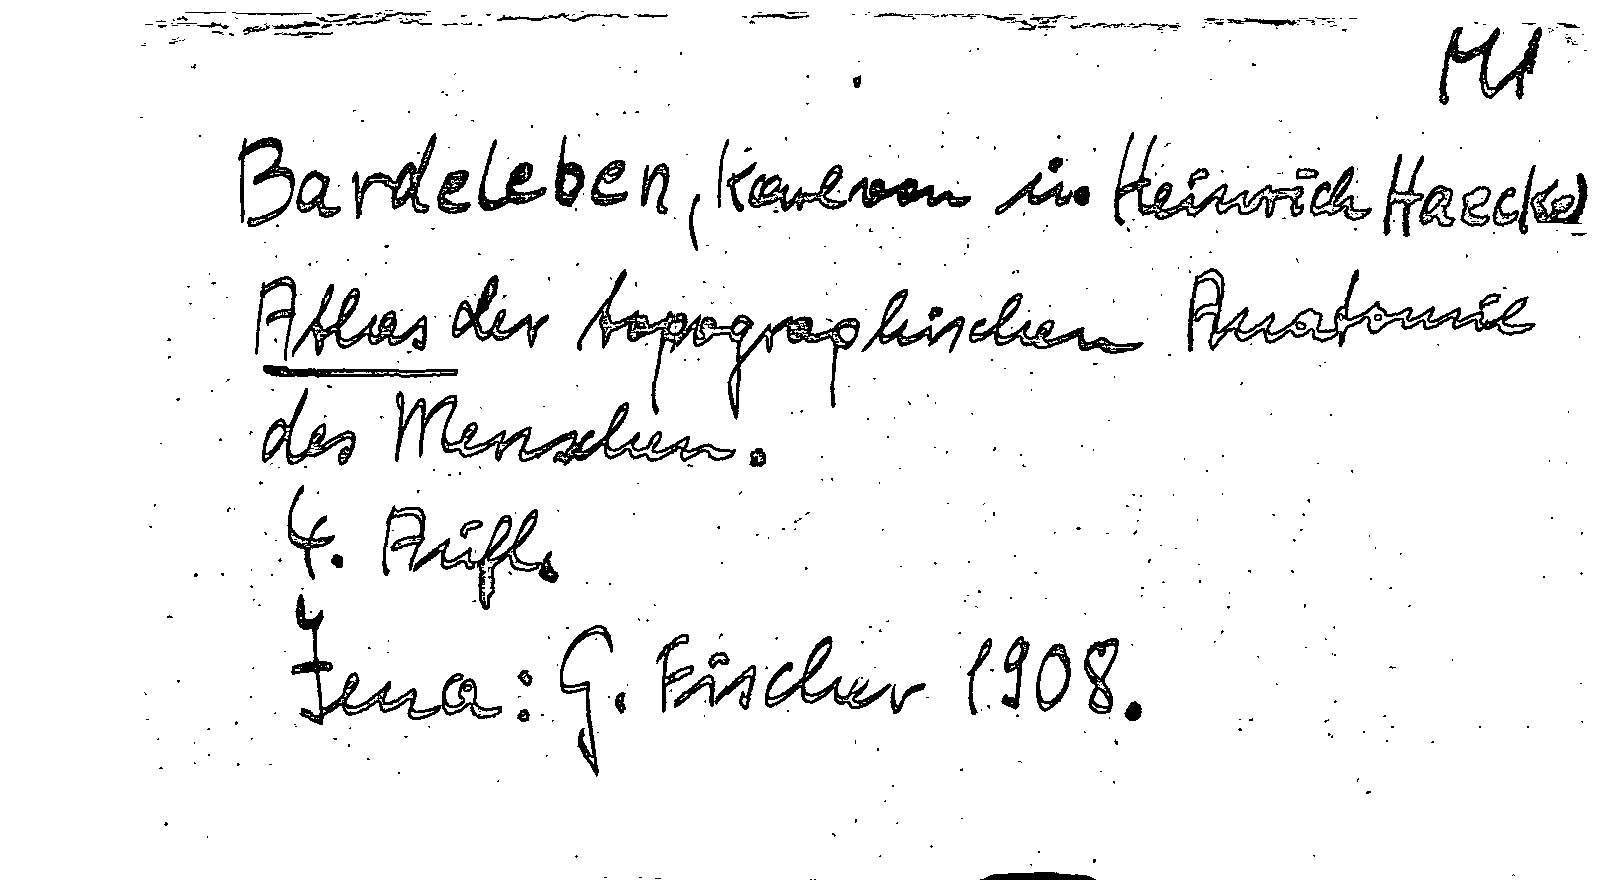 M1
Bardeleben, Karl von u. Heinrich Haeckel
Atlas der topographischen Anatomie
des Menschen.
4. Aufl.
Jena: G. Fischer 1908.